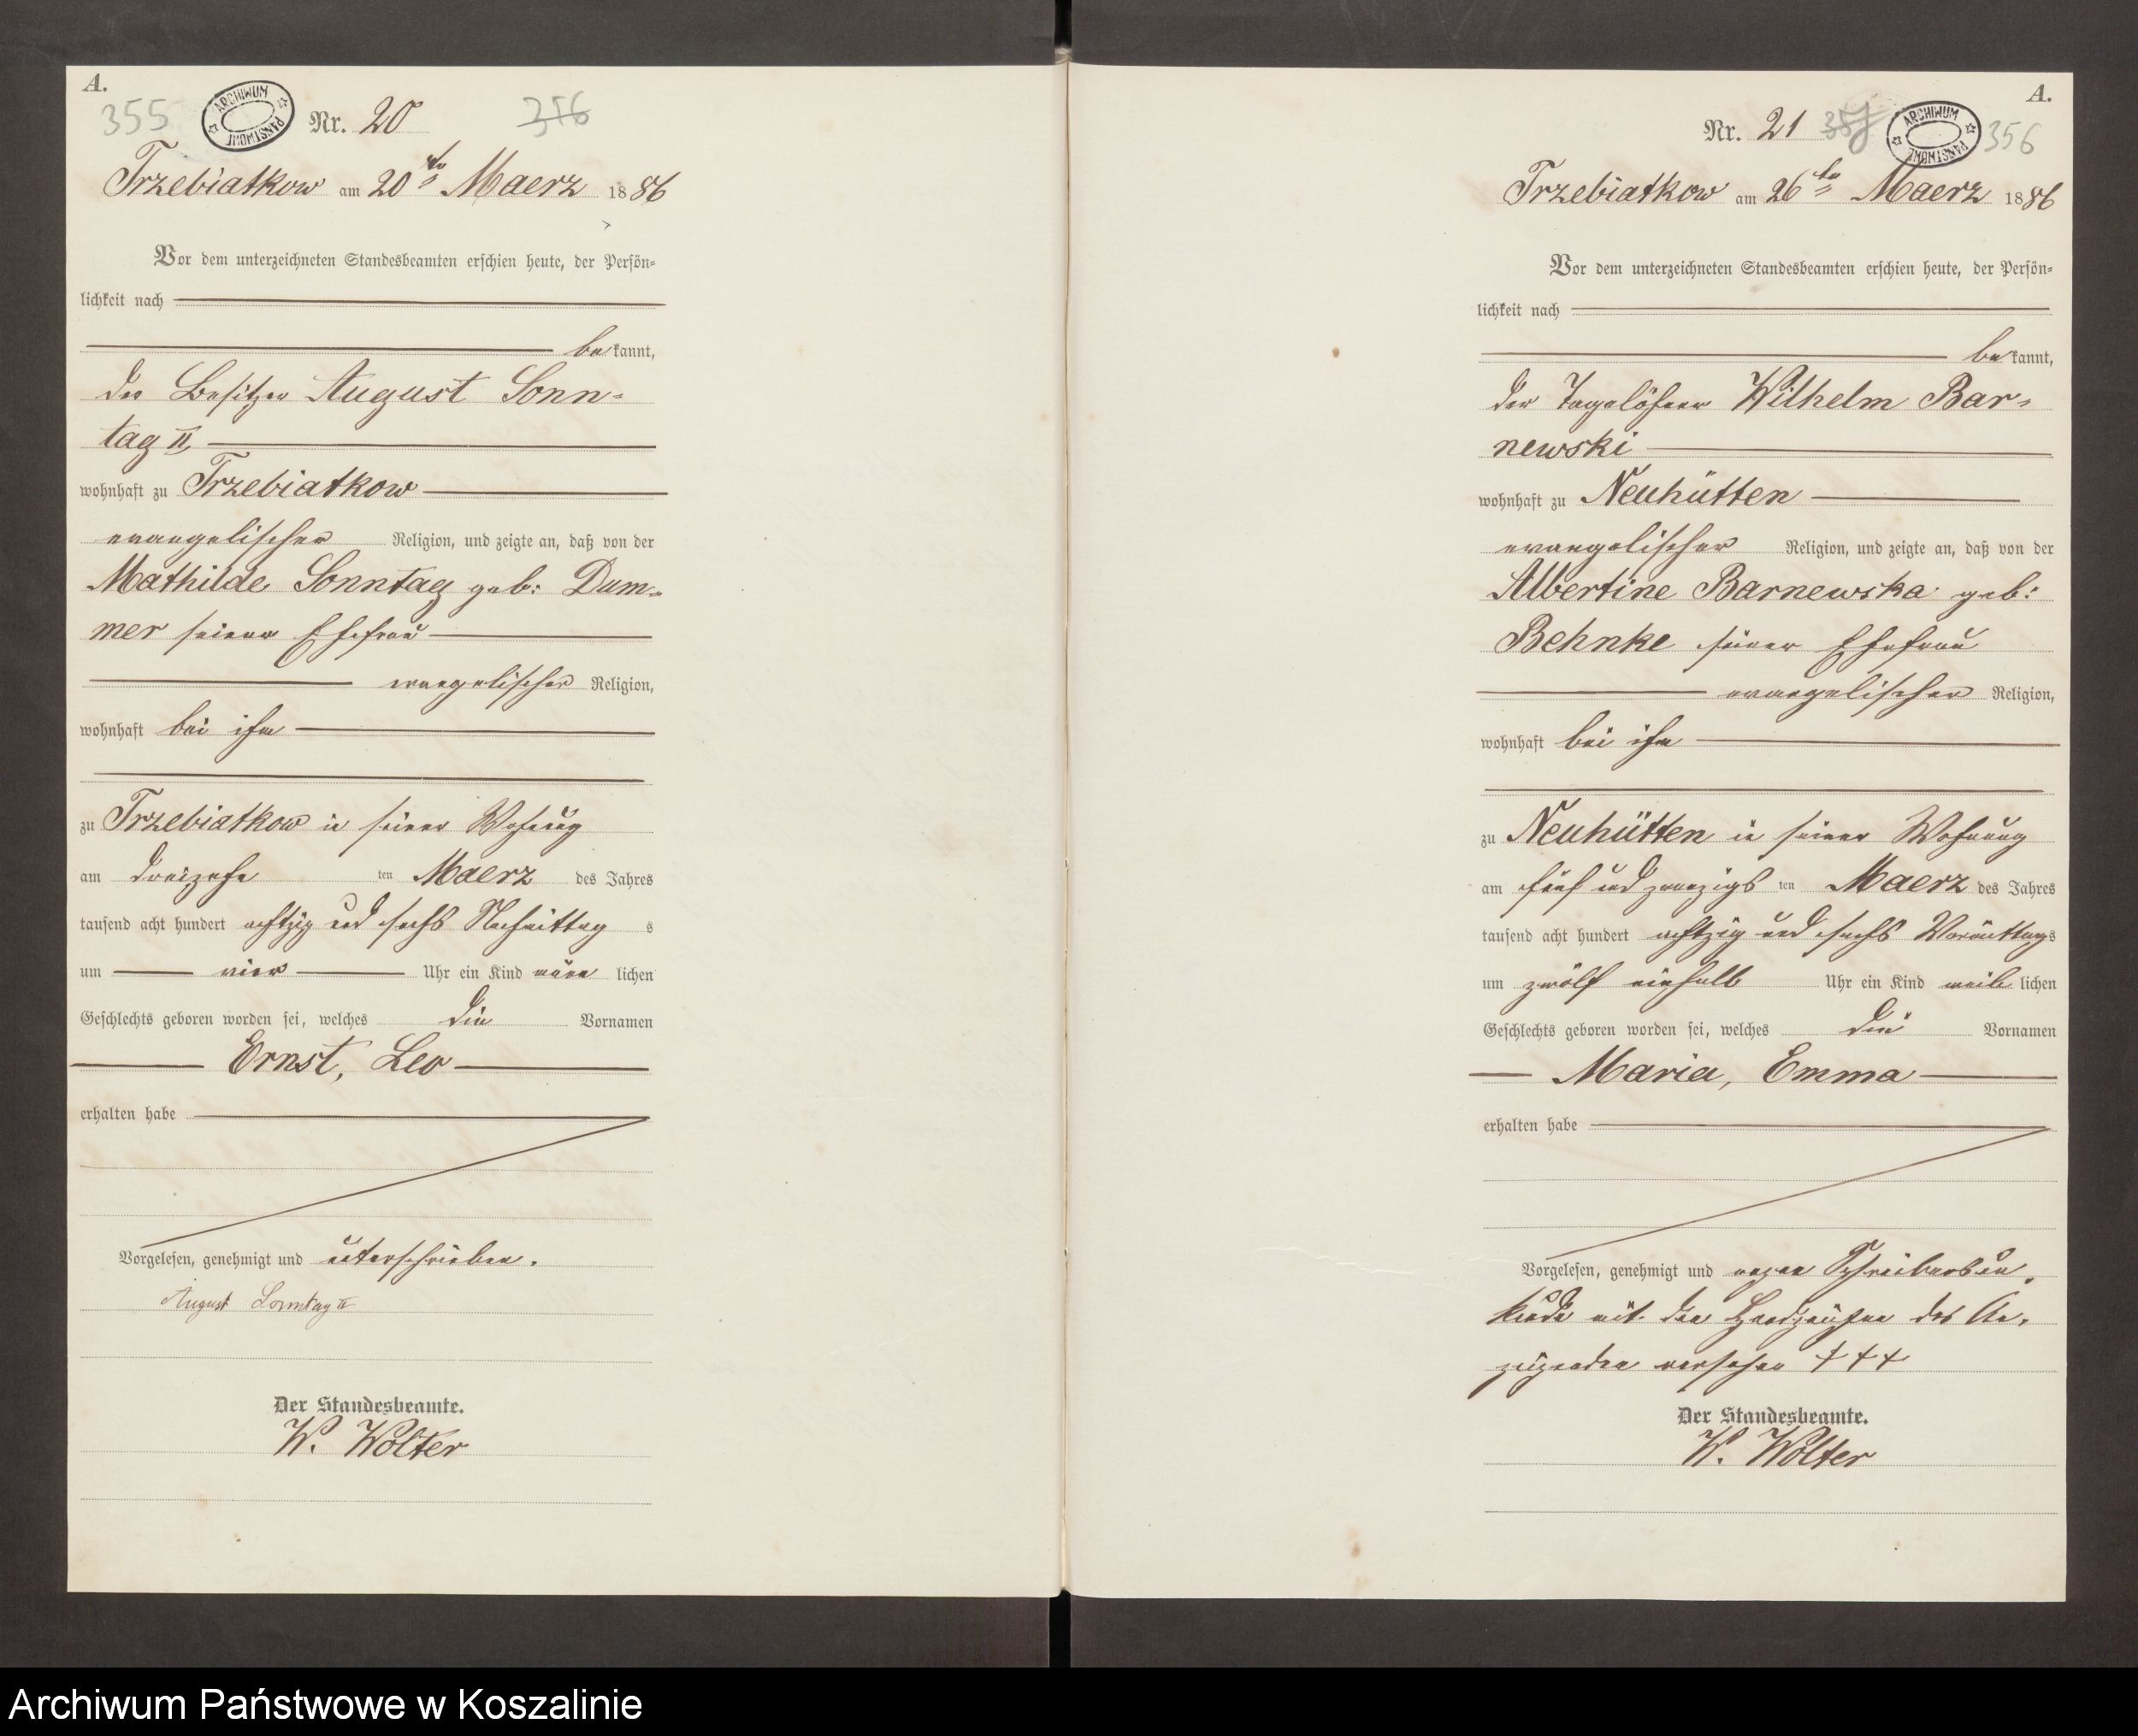 A.
355 ARCHIWUM PAŃSTWOWE Nr. 20 356
Trzebiatkow am 20ten Maerz 1886
Vor dem unterzeichneten Standesbeamten erschien heute, der Persön-
lichkeit nach
bekannt,
der Besitzer August Sonn-
tag II,
wohnhaft zu Trzebiatkow
evangelischer Religion, und zeigte an, daß von der
Mathilde Sonntag geb: Dum-
mer seiner Ehefrau
evangelischer Religion,
wohnhaft bei ihm
zu Trzebiatkow in seiner Wohnung
am dreizehn ten Maerz des Jahres
tausend acht hundert achtzig und sechs Nachmittag s
um vier Uhr ein Kind männ lichen
Geschlechts geboren worden sei, welches die Vornamen
Ernst, Leo
erhalten habe
Vorgelesen, genehmigt und unterschrieben.
August Sonntag II
Der Standesbeamte.
W. Wolter
A.
Nr. 21 357 ARCHIWUM PAŃSTWOWE 356
Trzebiatkow am 26ten Maerz 1886
Vor dem unterzeichneten Standesbeamten erschien heute, der Persön-
lichkeit nach
bekannt,
der Tagelöhner Wilhelm Bar-
newski
wohnhaft zu Neuhütten
evangelischer Religion, und zeigte an, daß von der
Albertine Barnewska geb:
Behnke seiner Ehefrau
evangelischer Religion,
wohnhaft bei ihm
zu Neuhütten in seiner Wohnung
am fünf und zwanzigs ten Maerz des Jahres
tausend acht hundert achtzig und sechs Vormittags
um zwölf einhalb Uhr ein Kind weib lichen
Geschlechts geboren worden sei, welches die Vornamen
Maria, Emma
erhalten habe
Vorgelesen, genehmigt und wegen Schreibensun-
kunde mit den Handzeichen des An-
zeigenden versehen +++
Der Standesbeamte.
W. Wolter
Archiwum Państwowe w Koszalinie